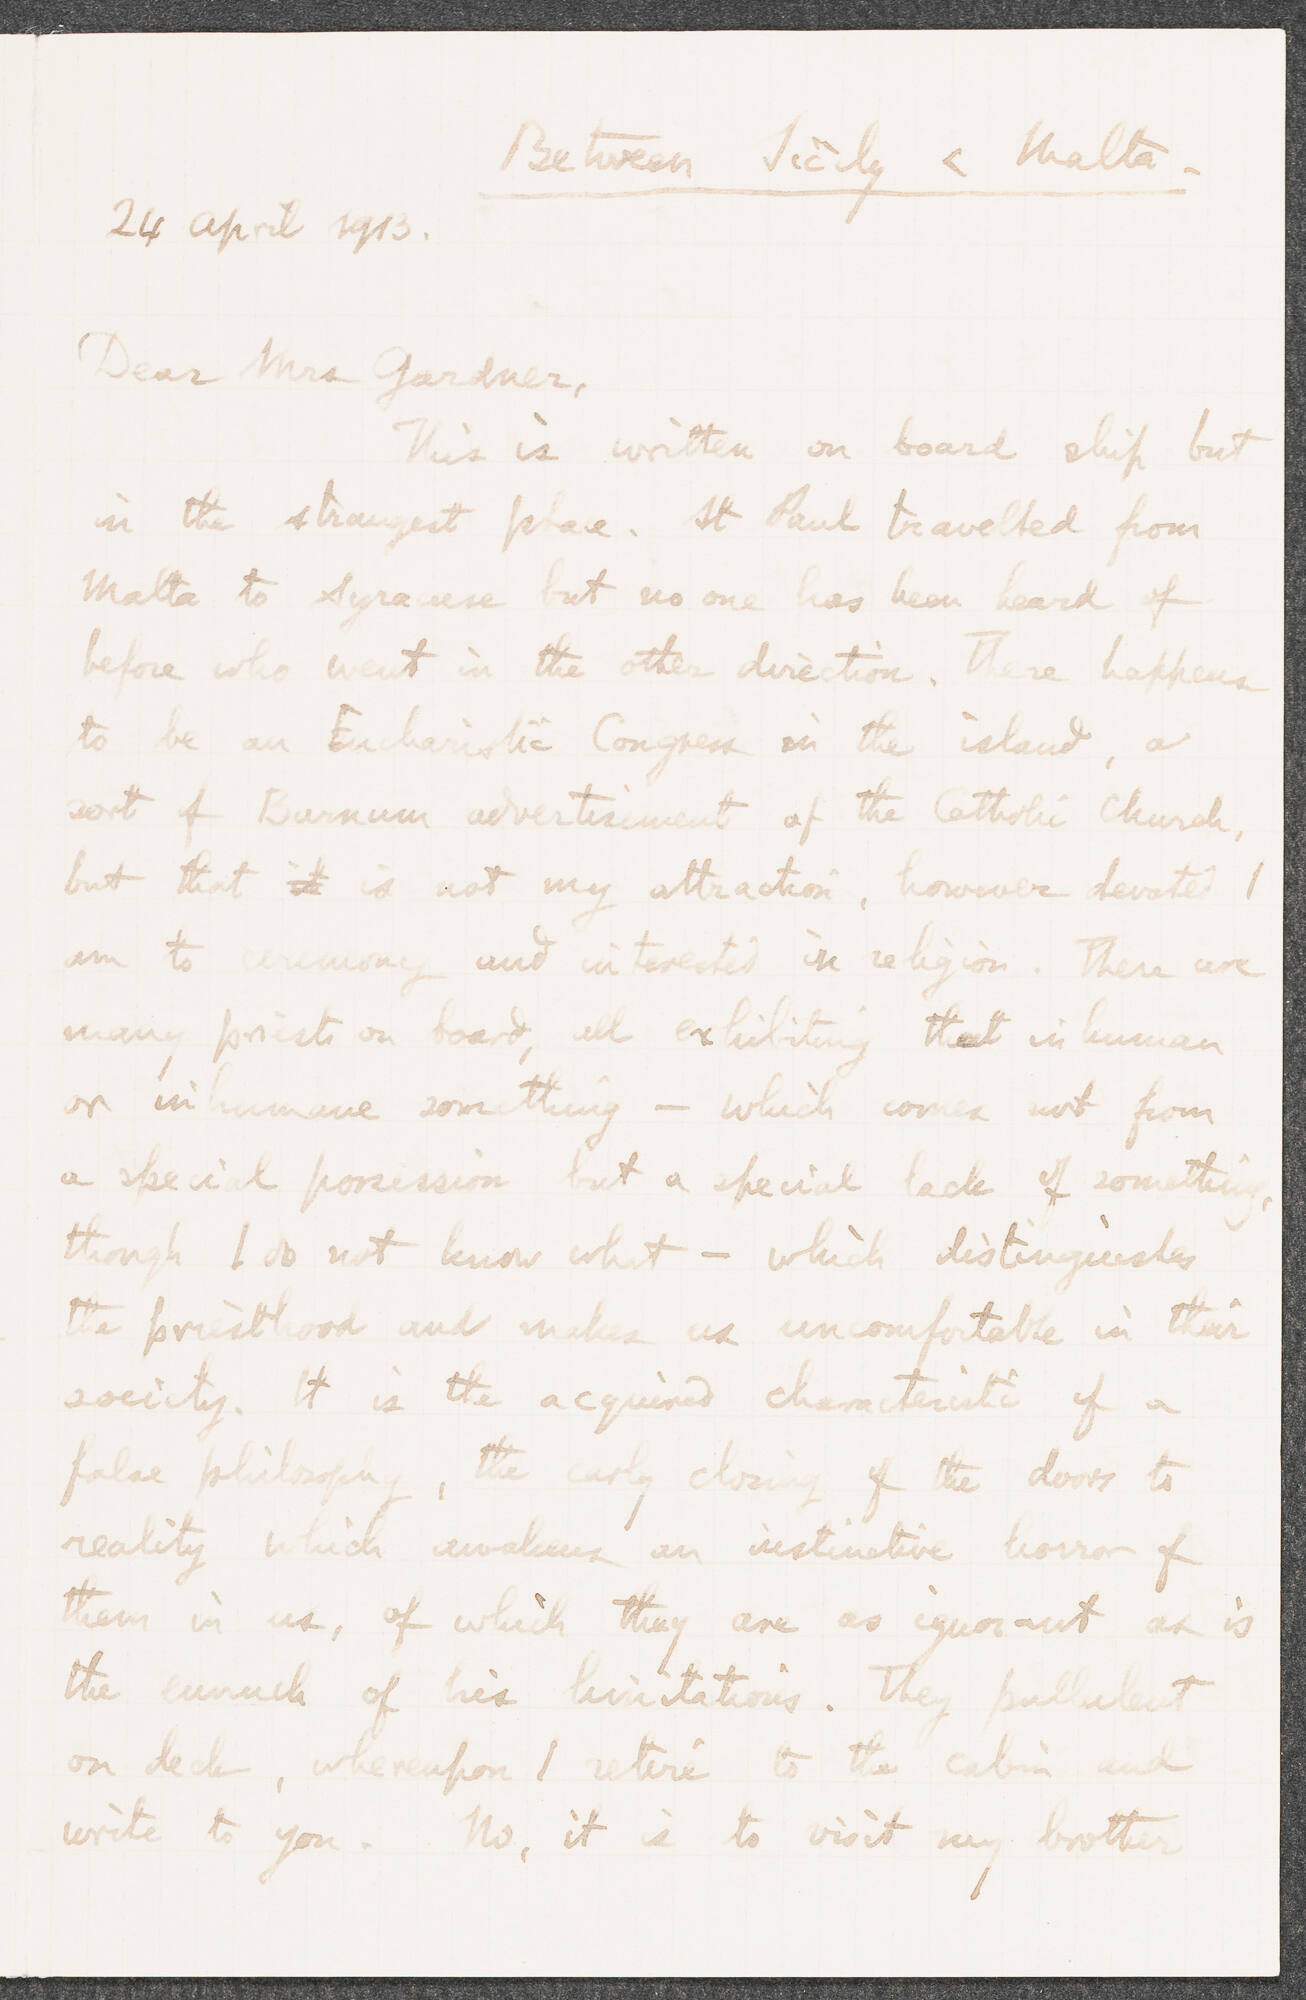 Between Sicily & Malta -
24 April 1913.
Dear Mrs Gardner,
This is written on board ship but
in the strangest place. St Paul travelled from
Malta to Syracuse but no one has been heard of
before who went in the other direction. There happens
to be an Eucharistic Congress in the island, a
sort of Barnum advertisement of the Catholic Church,
but that it is not my attraction, however devoted I
am to ceremony and interested in religion. There are
many priests on board, all exhibiting that inhuman
or inhumane something — which comes not from
a special possession but a special lack of something,
though I do not know what — which distinguishes
the priesthood and makes us uncomfortable in their
society. It is the acquired characteristic of a
false philosophy, the early closing of the doors to
reality which awakens an instinctive horror of
them in us, of which they are as ignorant as is
the eunuch of his limitations. They pullulent
on deck, whereupon I retire to the cabin and
write to you. No, it is to visit my brother